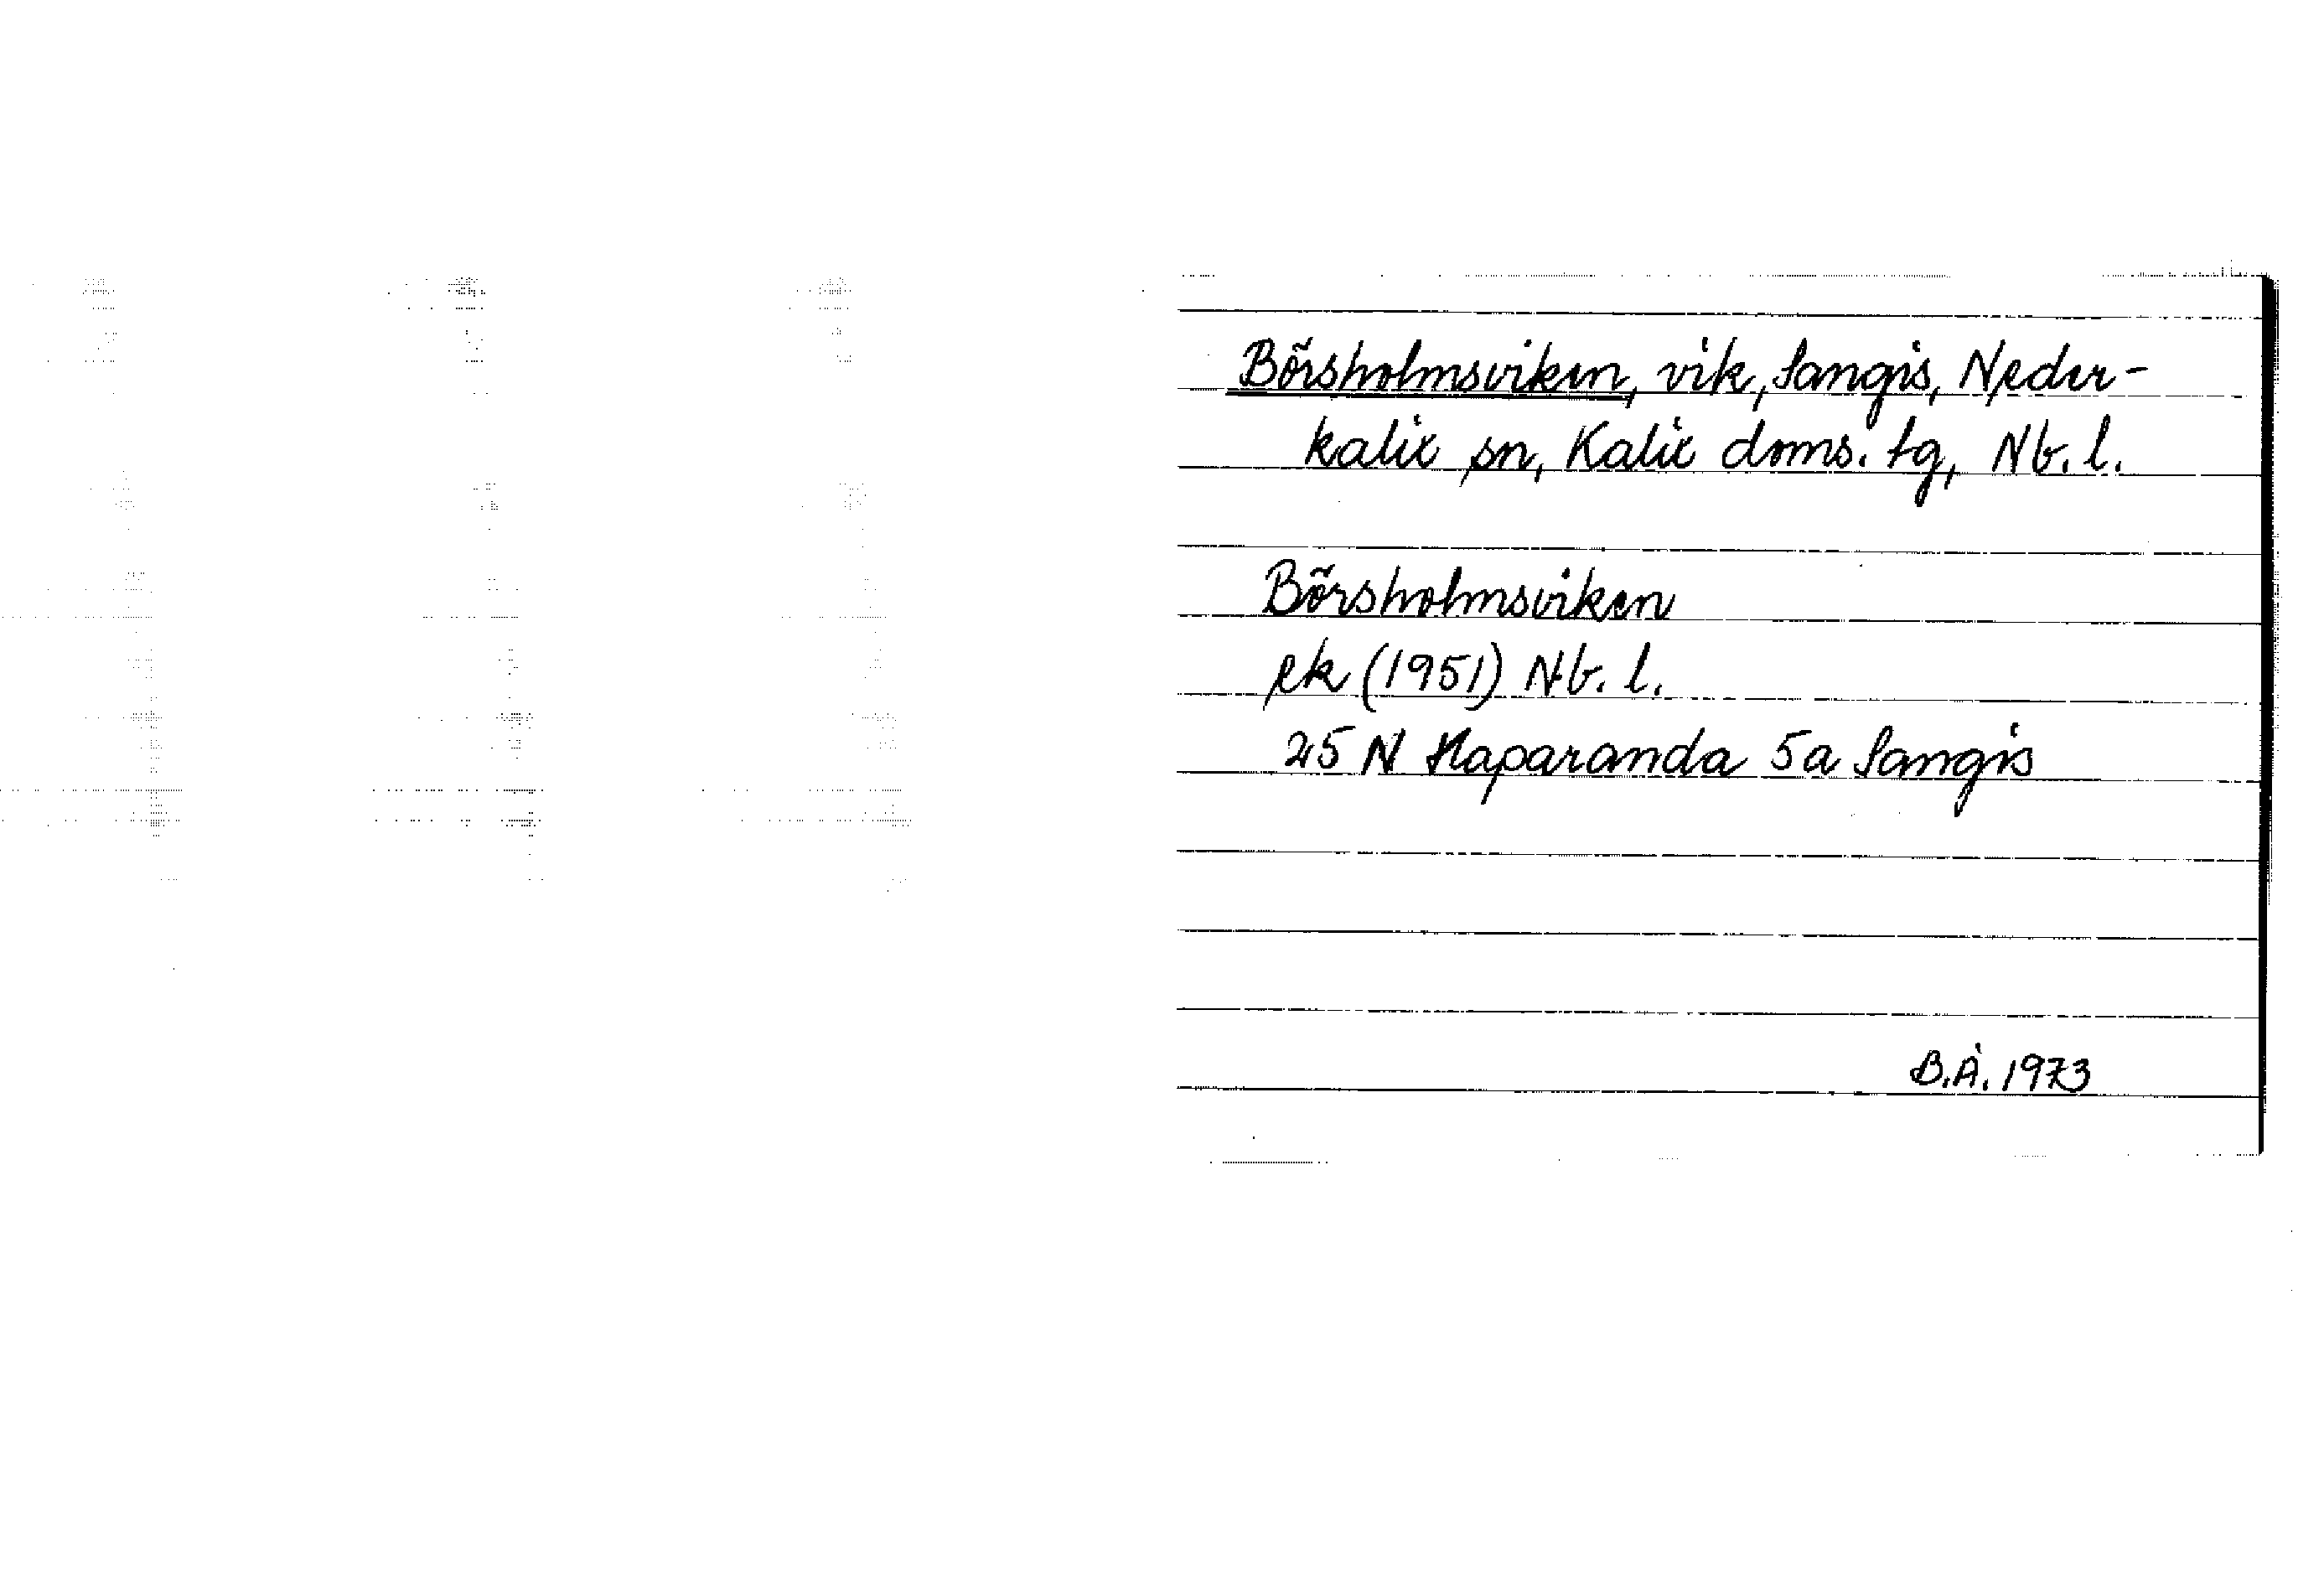 Börsholmsviken, vik, Sangis, Neder-
kalix sn, Kalix doms. tg, Nb. l.
Börsholmsviken
ek (1951) Nb. l.
25 N Haparanda 5a Sangis
B.Å. 1973